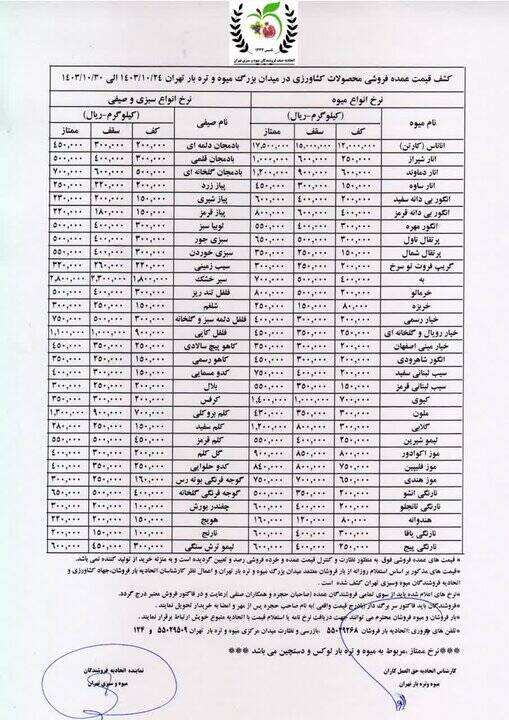 تاسیس ۱۳۳۳
اتحادیه صنف فروشندگان میوه و سبزی تهران
کشف قیمت عمده فروشی محصولات کشاورزی در میدان بزرگ میوه و تره بار تهران ۱۴۰۳/۱۰/۲۴ الی ۱۴۰۳/۱۰/۳۰
نرخ انواع میوه نرخ انواع سبزی و صیفی
نام میوه (کیلوگرم-ریال) نام صیفی (کیلوگرم-ریال)
کف سقف ممتاز کف سقف ممتاز
آناناس (کارتن) ۱۲,۰۰۰,۰۰۰ ۱۵,۰۰۰,۰۰۰ ۱۷,۵۰۰,۰۰۰ بادمجان دلمه ای ۲۰۰,۰۰۰ ۳۰۰,۰۰۰ ۴۵۰,۰۰۰
انار شیراز ۲۵۰,۰۰۰ ۶۰۰,۰۰۰ ۱,۰۰۰,۰۰۰ بادمجان قلمی ۳۰۰,۰۰۰ ۴۰۰,۰۰۰ ۵۵۰,۰۰۰
انار دماوند ۶۰۰,۰۰۰ ۹۰۰,۰۰۰ ۱,۲۰۰,۰۰۰ بادمجان گلخانه ای ۵۰۰,۰۰۰ ۶۰۰,۰۰۰ ۷۰۰,۰۰۰
انار ساوه ۱۵۰,۰۰۰ ۳۰۰,۰۰۰ ۴۵۰,۰۰۰ پیاز زرد ۲۰۰,۰۰۰ ۲۲۰,۰۰۰ ۲۵۰,۰۰۰
انگور بی دانه سفید ۲۰۰,۰۰۰ ۴۰۰,۰۰۰ ۶۰۰,۰۰۰ پیاز شیری ۱۵۰,۰۰۰ ۲۰۰,۰۰۰ ۲۳۰,۰۰۰
انگور بی دانه قرمز ۴۰۰,۰۰۰ ۶۰۰,۰۰۰ ۸۰۰,۰۰۰ پیاز قرمز ۱۵۰,۰۰۰ ۱۸۰,۰۰۰ ۲۲۰,۰۰۰
انگور مهره ۳۰۰,۰۰۰ ۴۰۰,۰۰۰ ۵۵۰,۰۰۰ لوبیا سبز ۳۰۰,۰۰۰ ۴۰۰,۰۰۰ ۵۰۰,۰۰۰
پرتقال ناول ۳۰۰,۰۰۰ ۵۰۰,۰۰۰ ۶۵۰,۰۰۰ سبزی جور ۳۰۰,۰۰۰ ۴۰۰,۰۰۰ ۵۰۰,۰۰۰
پرتقال شمال ۱۵۰,۰۰۰ ۲۵۰,۰۰۰ ۳۵۰,۰۰۰ سبزی خوردن ۳۰۰,۰۰۰ ۴۰۰,۰۰۰ ۵۵۰,۰۰۰
گریپ فروت تو سرخ ۲۰۰,۰۰۰ ۲۵۰,۰۰۰ ۳۰۰,۰۰۰ سیب زمینی ۲۲۰,۰۰۰ ۲۶۰,۰۰۰ ۳۲۰,۰۰۰
به ۴۰۰,۰۰۰ ۵۰۰,۰۰۰ ۷۰۰,۰۰۰ سیر خشک ۱,۸۰۰,۰۰۰ ۲,۳۰۰,۰۰۰ ۲,۸۰۰,۰۰۰
خرمالو ۲۰۰,۰۰۰ ۵۰۰,۰۰۰ ۸۰۰,۰۰۰ فلفل تند ریز ۳۰۰,۰۰۰ ۴۰۰,۰۰۰ ۵۰۰,۰۰۰
خربزه ۸۰,۰۰۰ ۱۵۰,۰۰۰ ۲۵۰,۰۰۰ شلغم ۱۵۰,۰۰۰ ۲۵۰,۰۰۰ ۳۰۰,۰۰۰
خیار رسمی ۲۰۰,۰۰۰ ۳۰۰,۰۰۰ ۴۵۰,۰۰۰ فلفل دلمه سبز و گلخانه ۳۰۰,۰۰۰ ۵۰۰,۰۰۰ ۷۵۰,۰۰۰
خیار رویال و گلخانه ای ۲۵۰,۰۰۰ ۳۵۰,۰۰۰ ۴۵۰,۰۰۰ فلفل کاپی ۹۰۰,۰۰۰ ۱,۰۰۰,۰۰۰ ۱,۱۰۰,۰۰۰
خیار مینی اصفهان ۲۰۰,۰۰۰ ۳۵۰,۰۰۰ ۴۵۰,۰۰۰ کاهو پیچ سالادی ۲۵۰,۰۰۰ ۳۵۰,۰۰۰ ۴۵۰,۰۰۰
انگور شاهرودی ۲۵۰,۰۰۰ ۳۰۰,۰۰۰ ۴۰۰,۰۰۰ کاهو رسمی ۱۵۰,۰۰۰ ۲۵۰,۰۰۰ ۳۵۰,۰۰۰
سیب لبنانی سفید ۲۰۰,۰۰۰ ۴۰۰,۰۰۰ ۷۵۰,۰۰۰ کدو مسمایی ۲۰۰,۰۰۰ ۳۰۰,۰۰۰ ۴۰۰,۰۰۰
سیب لبنانی قرمز ۱۵۰,۰۰۰ ۳۵۰,۰۰۰ ۵۵۰,۰۰۰ بلال ۲۰۰,۰۰۰ ۲۵۰,۰۰۰ ۳۰۰,۰۰۰
کیوی ۷۰۰,۰۰۰ ۱,۰۰۰,۰۰۰ ۱,۴۰۰,۰۰۰ کرفس ۲۰۰,۰۰۰ ۳۰۰,۰۰۰ ۳۵۰,۰۰۰
ملون ۳۰۰,۰۰۰ ۳۵۰,۰۰۰ ۴۳۰,۰۰۰ کلم بروکلی ۷۰۰,۰۰۰ ۹۰۰,۰۰۰ ۱,۳۰۰,۰۰۰
گلابی ۳۰۰,۰۰۰ ۸۰۰,۰۰۰ ۱,۲۰۰,۰۰۰ کلم سفید ۱۵۰,۰۰۰ ۲۵۰,۰۰۰ ۲۸۰,۰۰۰
لیمو شیرین ۲۵۰,۰۰۰ ۴۰۰,۰۰۰ ۵۵۰,۰۰۰ کلم قرمز ۴۵۰,۰۰۰ ۵۰۰,۰۰۰ ۵۵۰,۰۰۰
موز اکوادور ۸۰۰,۰۰۰ ۸۵۰,۰۰۰ ۹۰۰,۰۰۰ گل کلم ۲۰۰,۰۰۰ ۳۰۰,۰۰۰ ۴۰۰,۰۰۰
موز فلیپین ۷۵۰,۰۰۰ ۸۰۰,۰۰۰ ۸۴۰,۰۰۰ کدو حلوایی ۲۵۰,۰۰۰ ۳۰۰,۰۰۰ ۴۰۰,۰۰۰
موز هندی ۶۵۰,۰۰۰ ۷۰۰,۰۰۰ ۷۵۰,۰۰۰ گوجه فرنگی بوته رس ۱۶۰,۰۰۰ ۲۵۰,۰۰۰ ۳۰۰,۰۰۰
نارنگی انشو ۲۰۰,۰۰۰ ۴۰۰,۰۰۰ ۵۰۰,۰۰۰ گوجه فرنگی گلخانه ۴۰۰,۰۰۰ ۵۰۰,۰۰۰ ۶۵۰,۰۰۰
نارنگی تانجلو ۲۰۰,۰۰۰ ۴۰۰,۰۰۰ ۶۰۰,۰۰۰ چغندر بورش ۱۰۰,۰۰۰ ۲۰۰,۰۰۰ ۳۰۰,۰۰۰
هندوانه ۸۰,۰۰۰ ۱۲۰,۰۰۰ ۱۶۰,۰۰۰ هویج ۱۵۰,۰۰۰ ۲۰۰,۰۰۰ ۲۲۰,۰۰۰
نارنگی یافا ۳۰۰,۰۰۰ ۴۰۰,۰۰۰ ۶۰۰,۰۰۰ نارنج ۱۰۰,۰۰۰ ۱۵۰,۰۰۰ ۲۰۰,۰۰۰
نارنگی پیج ۲۵۰,۰۰۰ ۴۰۰,۰۰۰ ۶۰۰,۰۰۰ لیمو ترش سنگی ۳۰۰,۰۰۰ ۴۵۰,۰۰۰ ۶۰۰,۰۰۰
* قیمت های عمده فروشی فوق به منظور نظارت و کنترل قیمت عمده و خرده فروشی رصد و تعیین گردیده است و به منزله خرید از تولید کننده نمی باشد.
* قیمت های مذکور بر اساس استعلام روزانه از بار فروشان معتمد میدان بزرگ میوه و تره بار تهران و اعمال نظر کارشناسان اتحادیه بارفروشان،جهاد کشاورزی و
اتحادیه فروشندگان میوه وسبزی تهران کشف شده است .
*نرخ های اعلام شده باید از سوی تمامی فروشندگان عمده (صاحبان حجره و همکاران صنفی )رعایت و در فاکتور فروش معتبر درج گردد.
*فروشندگان باید فاکتور سر برگ دار (با درج قیمت واقعی )به نام صاحب حجره پس از مهر و امضا به خریدار تحویل نمایند .
*بار فروشان و میوه فروشان محترم می توانند جهت دریافت نرخ نامه یا استعلام قیمت با اتحادیه متبوع خویش ارتباط برقرار نمایند .
*تلفن های ضروری :اتحادیه بار فروشان ۵۵۰۲۹۲۶۸ ،بازرسی و نظارت میدان مرکزی میوه و تره بار تهران ۵۵۰۲۹۵۰۹ و ۱۲۴
***نرخ ممتاز،مربوط به میوه و تره بار لوکس و دستچین می باشد ***
کارشناس اتحادیه حق العمل کاران نماینده اتحادیه فروشندگان
میوه وتره بار تهران میوه و سبزی تهران